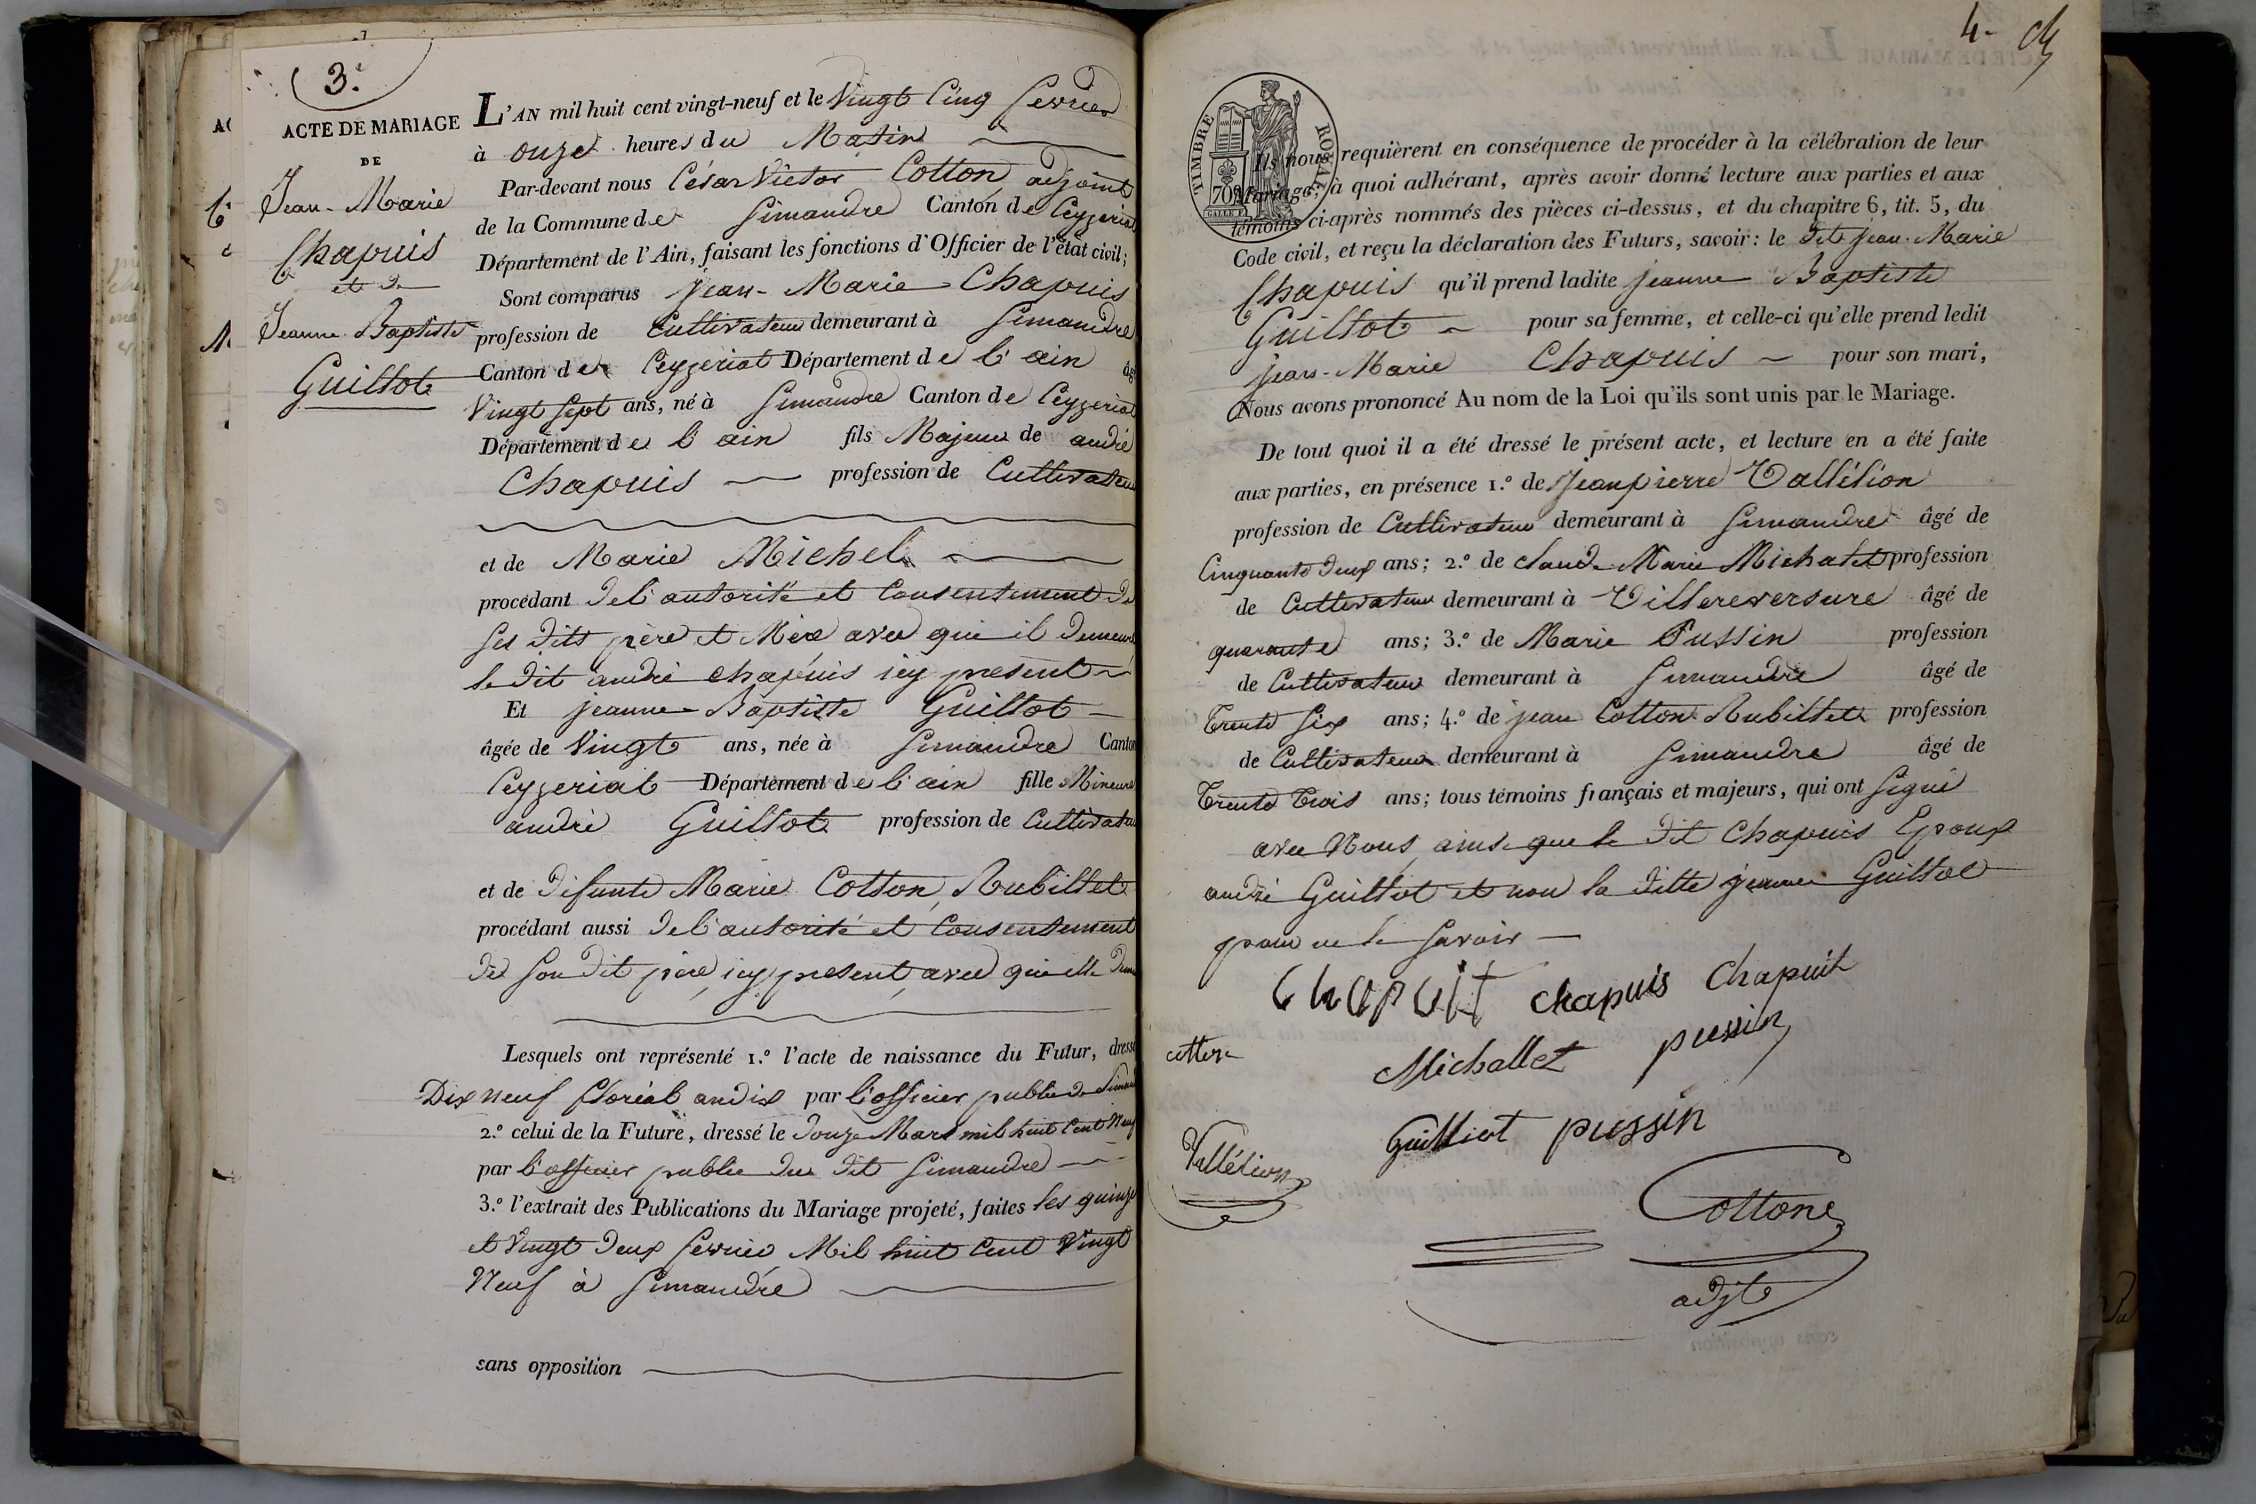 3.e
ACTE DE MARIAGE
DE
Jean-Marie
Chapuis
et de
Jeanne Baptiste
Guillot
L'AN mil huit cent vingt-neuf et le Vingt Cinq fevrier
à onze heures du Matin
Par-devant nous César Victor Cotton, adjoint
de la Commune de Simandre Canton de Ceyzeriat
Département de l'Ain, faisant les fonctions d'Officier de l'état civil;
Sont comparus Jean-Marie Chapuis
profession de Cultivateur demeurant à Simandre
Canton de Ceyzeriat Département de l'ain âgé
Vingt Sept ans, né à Simandre Canton de Ceyzeriat
Département de l'ain fils Majeur de andré
Chapuis profession de Cultivateur
et de Marie Michel
procédant de l'autorité et Consentement de
ses dits père et Mère avec qui il demeure
le dit andré chapuis icy present
Et jeanne Baptiste Guillot
âgée de Vingt ans, née à Simandre Canton
Ceyzeriat Département de l'ain fille Mineure
andré Guillot profession de Cultivateur
et de defunte Marie Cotton, Rubillet
procédant aussi de l'autorité et Consentement
de son dit père, icy present, avec qui elle
Lesquels ont représenté 1.º l'acte de naissance du Futur, dressé
Dix neuf floréal an dix par l'officier public de
2.º celui de la Future, dressé le douze Mars mil huit Cent Neuf
par l'officier public du dit Simandre
3.º l'extrait des Publications du Mariage projeté, faites les quinze
et Vingt deux fevrier Mil huit Cent Vingt
Neuf à Simandre
sans opposition
4-
TIMBRE ROYAL
70
Ils nous requièrent en conséquence de procéder à la célébration de leur
Mariage; à quoi adhérant, après avoir donné lecture aux parties et aux
témoins ci-après nommés des pièces ci-dessus, et du chapitre 6, tit. 5, du
Code civil, et reçu la déclaration des Futurs, savoir: le dit Jean-Marie
Chapuis qu'il prend ladite jeanne Baptiste
Guillot pour sa femme, et celle-ci qu'elle prend ledit
jean-Marie Chapuis pour son mari,
Nous avons prononcé Au nom de la Loi qu'ils sont unis par le Mariage.
De tout quoi il a été dressé le présent acte, et lecture en a été faite
aux parties, en présence 1.º de Jeanpierre Vallélion
profession de Cultivateur demeurant à Simandre âgé de
Cinquante deux ans; 2.º de claude Marie Michalet profession
de Cultivateur demeurant à Villereversure âgé de
quarante ans; 3.º de Marie Pussin profession
de Cultivateur demeurant à Simandre âgé de
Trente Six ans; 4.º de jean Cotton Rubillet profession
de Cultivateur demeurant à Simandre âgé de
Trente Trois ans; tous témoins français et majeurs, qui ont Signé
avec Nous, ainsi que le dit Chapuis Epoux
andré Guillot et non la ditte jeanne Guillot
pour ne le Savoir
Chapuit chapuis Chapuit
cotton Michallet pussin
Vallélion Guilliot pussin
Cottone
adjt